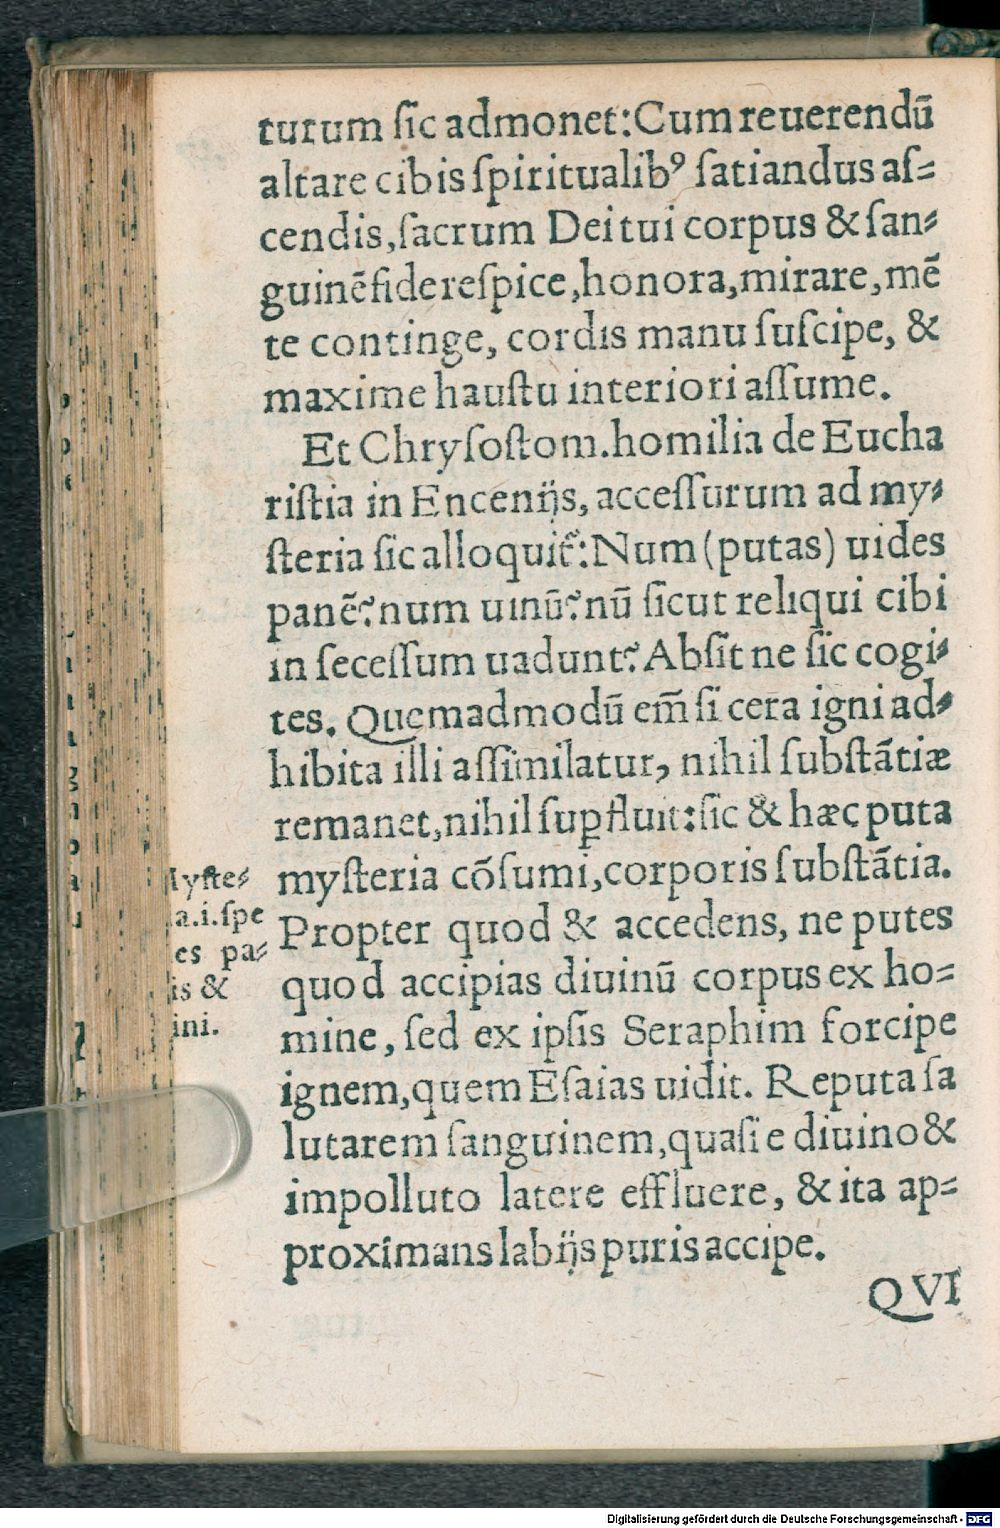 turum ſic admonet: Cum reuerendū
altare cibis ſpiritualibꝰ ſatiandus aſ⸗
cendis, ſacrum Dei tui corpus & ſan⸗
guinē fide reſpice, honora, mirare, mē
te continge, cordis manu ſuſcipe, &
maxime hauſtu interiori aſſume.
Et Chryſoſtom. homilia de Eucha
riſtia in Encenijs, acceſſurum ad my⸗
ſteria ſic alloquit᷑: Num (putas) uides
panē? num uinū? nū ſicut reliqui cibi
in ſeceſſum uadunt? Abſit ne ſic cogi⸗
tes. Quemadmodū em̄ ſi cera igni ad⸗
hibita illi aſſimilatur, nihil ſubſtātiæ
remanet, nihil ſuꝑfluit: ſic & hæc puta
myſteria cōſumi, corporis ſubſtātia.
Propter quod & accedens, ne putes
quod accipias diuinū corpus ex ho⸗
mine, ſed ex ipſis Seraphim forcipe
ignem, quem Eſaias uidit. Reputa ſa
lutarem ſanguinem, quaſi e diuino &
impolluto latere effluere, & ita ap⸗
proximans labijs puris accipe.
QVI
yſte⸗
a.i.ſpe
es pa⸗
is &
ini.
Digitalisierung gefördert durch die Deutsche Forschungsgemeinschaft - DFG